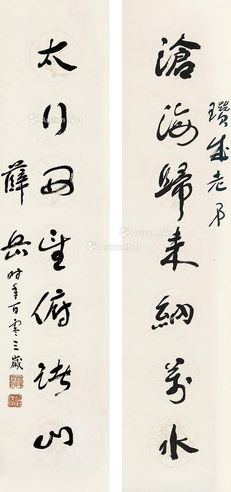 瓚成老弟
滄海歸來納萬水
太行四望俯諸山
薛岳時年百零三歲